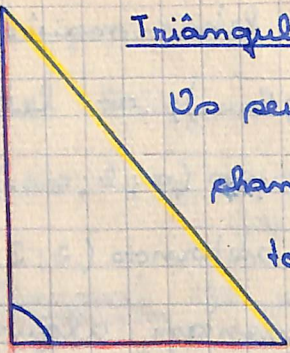 Triângul
Os seu
cham
to